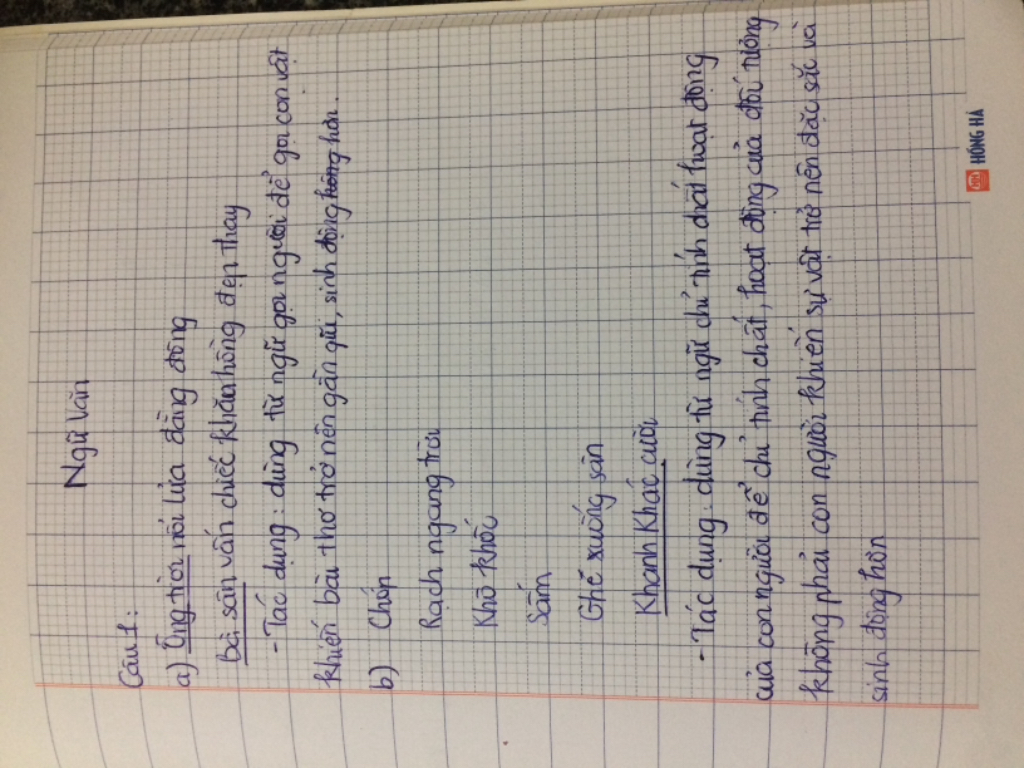 Ngữ Văn
Câu 1:
a) Ông trời nổi lửa đằng đông
bà sân vấn chiếc khăn hồng đẹp thay
- Tác dụng: dùng từ ngữ gọi người để gọi con vật
khiến bài thơ trở nên gần gũi, sinh động hơn.
b) Chớp
Rạch ngang trời
Khô khốc
Sấm
Ghé xuống sân
Khanh Khác cười
- Tác dụng: dùng từ ngữ chỉ tính chất hoạt động
của con người để chỉ tính chất, hoạt động của đối tượng
không phải con người khiến sự vật trở nên đặc sắc và
sinh động hơn
HH HỒNG HÀ